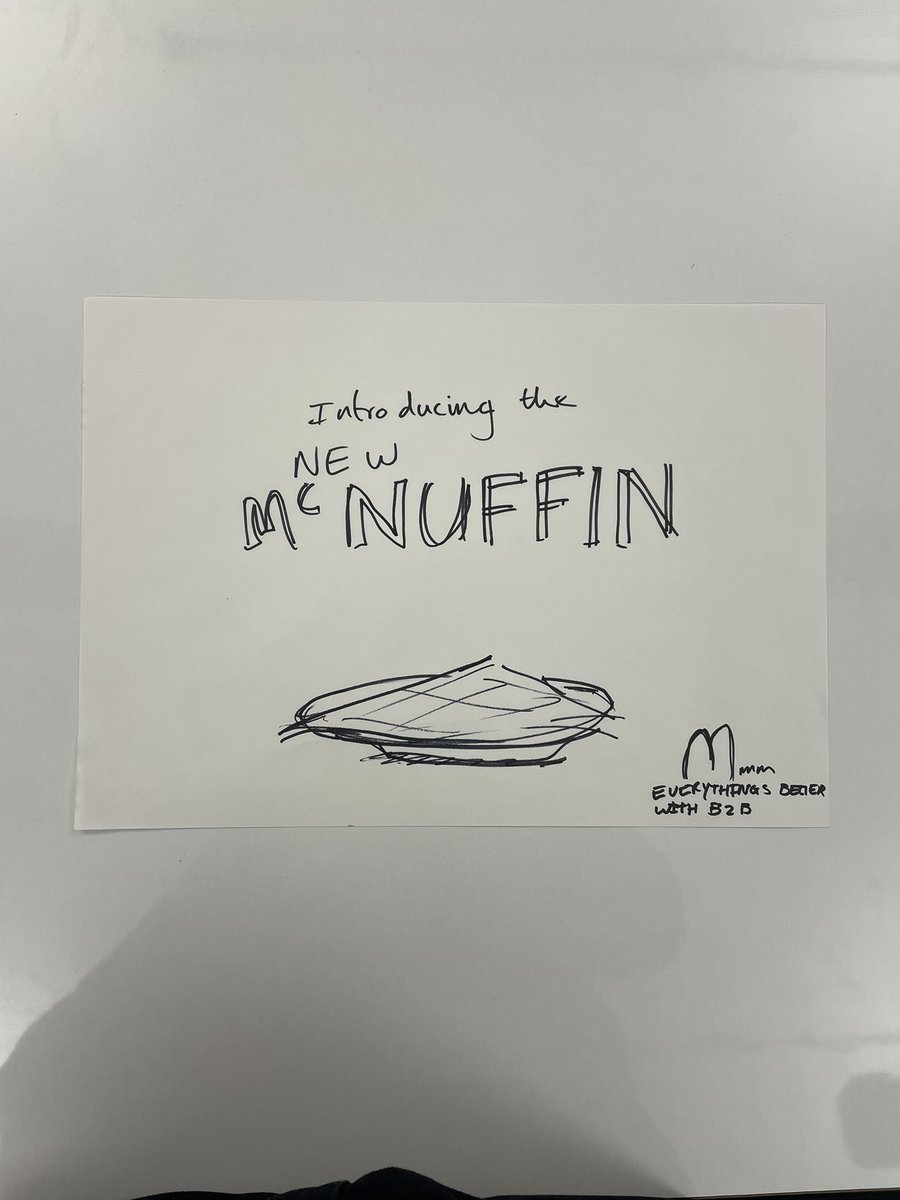 Introducing the
NEW
Mc NUFFIN
Mmm
EVERYTHINGS BETTER
WITH B2B